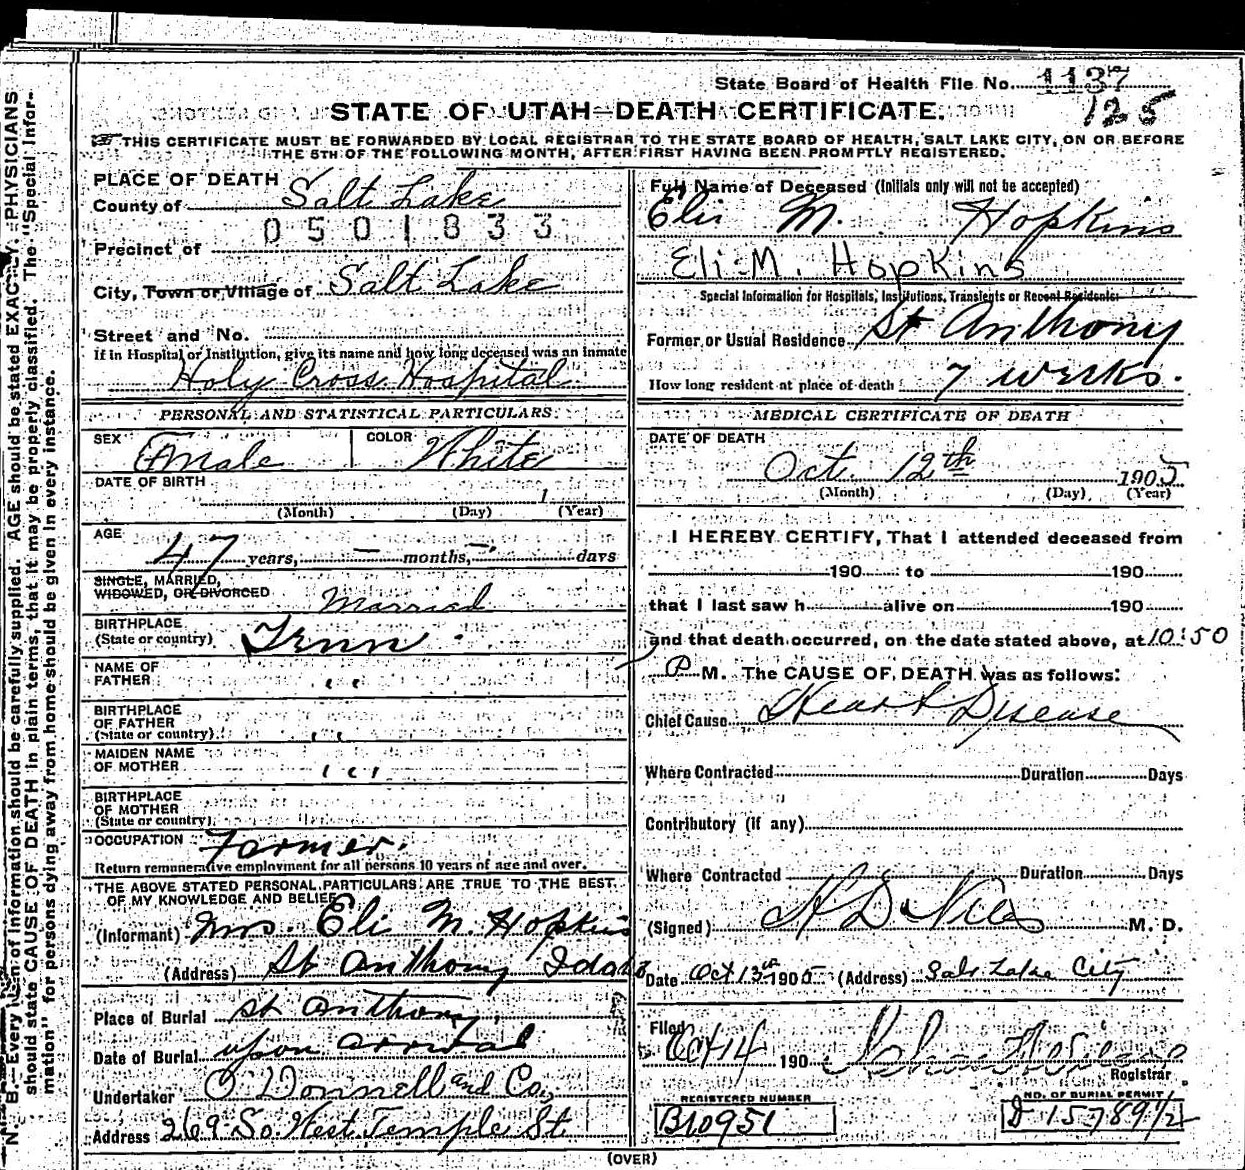 State Board of Health File No. 1137
125
STATE OF UTAH—DEATH CERTIFICATE.
THIS CERTIFICATE MUST BE FORWARDED BY LOCAL REGISTRAR TO THE STATE BOARD OF HEALTH, SALT LAKE CITY, ON OR BEFORE
THE 5TH OF THE FOLLOWING MONTH, AFTER FIRST HAVING BEEN PROMPTLY REGISTERED.
PLACE OF DEATH
County of Salt Lake
0501833
Precinct of
City, Town or Village of Salt Lake
Street and No.
If in Hospital or Institution, give its name and how long deceased was an inmate
Holy Cross Hospital
PERSONAL AND STATISTICAL PARTICULARS.
SEX Female COLOR White
DATE OF BIRTH
1
(Month) (Day) (Year)
AGE
47 years, — months, — days
SINGLE, MARRIED,
WIDOWED, OR DIVORCED Married
BIRTHPLACE
(State or country) Tenn.
NAME OF
FATHER "
BIRTHPLACE
OF FATHER
(State or country) "
MAIDEN NAME
OF MOTHER "
BIRTHPLACE
OF MOTHER
(State or country)
OCCUPATION Farmer.
Return remunerative employment for all persons 10 years of age and over.
THE ABOVE STATED PERSONAL PARTICULARS ARE TRUE TO THE BEST
OF MY KNOWLEDGE AND BELIEF
(Informant) Mrs. Eli M. Hopkins
(Address) St Anthony Idaho
Place of Burial St Anthony
Date of Burial upon arrival
Undertaker O'Donnell and Co.,
Address 269 So. West Temple St.
Full Name of Deceased (Initials only will not be accepted)
Eli M. Hopkins
Eli M. Hopkins
Special Information for Hospitals, Institutions, Transients or Recent Residents:
Former or Usual Residence St Anthony
How long resident at place of death 7 weeks.
MEDICAL CERTIFICATE OF DEATH
DATE OF DEATH
Oct. 12th 1905
(Month) (Day) (Year)
I HEREBY CERTIFY, That I attended deceased from
190 to 190
that I last saw h alive on 190
and that death occurred, on the date stated above, at 10:50
P M. The CAUSE OF DEATH was as follows:
Chief Cause Heart Disease
Where Contracted Duration Days
Contributory (if any)
Where Contracted Duration Days
(Signed) H D Niles M. D.
Date Oct 13th 1905 (Address) Salt Lake City
Filed
Oct 14 190
Registrar
REGISTERED NUMBER
B10951
NO. OF BURIAL PERMIT
D 15789 1/2
(OVER)
N. B.—Every item of information should be carefully supplied. AGE should be stated EXACTLY. PHYSICIANS
should state CAUSE OF DEATH in plain terms, that it may be properly classified. The "Special Infor-
mation" for persons dying away from home should be given in every instance.